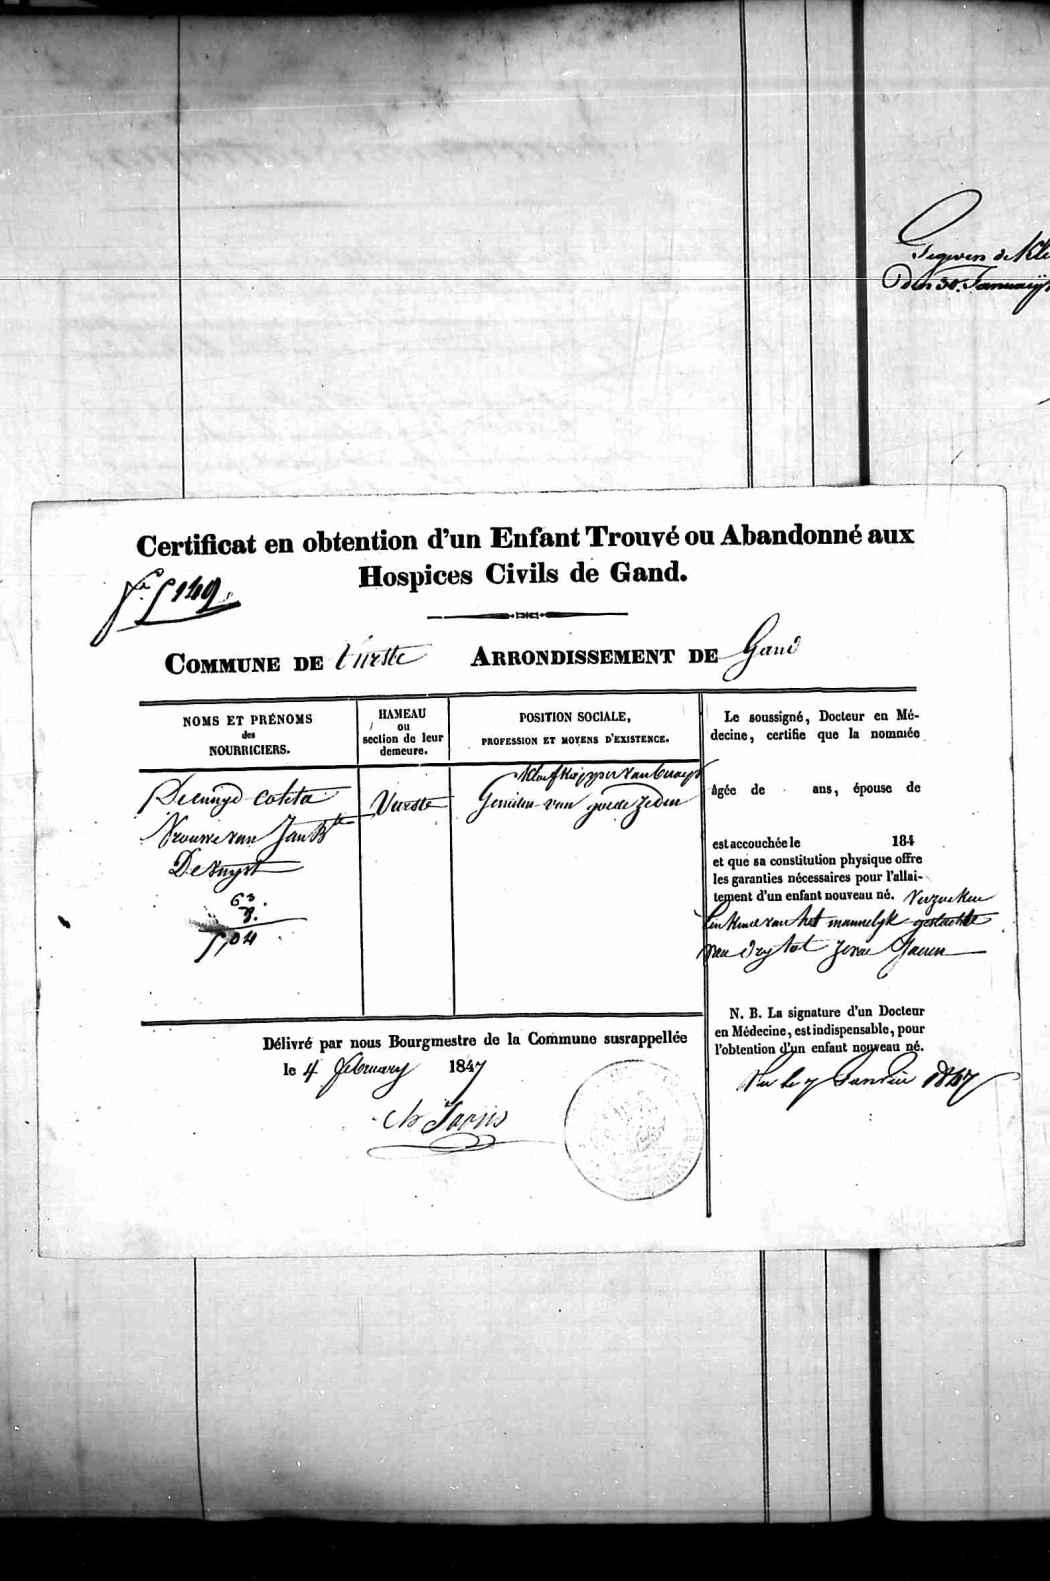 Gegeven de Kle
Den 30. January
Certificat en obtention d'un Enfant Trouvé ou Abandonné aux
Hospices Civils de Gand.
149
COMMUNE DE Vurste ARRONDISSEMENT DE Gand
NOMS ET PRÉNOMS
des
NOURRICIERS.
HAMEAU
ou
section de leur
demeure.
POSITION SOCIALE,
PROFESSION ET MOYENS D'EXISTENCE.
Colita
Vrouwe van Jan Bte
Deruyst
63
Vurste
Genieten van goede zeden
Le soussigné, Docteur en Mé-
decine, certifie que la nommée
âgée de ans, épouse de
est accouchée le 184
et que sa constitution physique offre
les garanties nécessaires pour l'allai-
tement d'un enfant nouveau né. Verzoeken
een Kind van het mannelyk geslachte
van dry tot zeven Jaeren
N. B. La signature d'un Docteur
en Médecine, est indispensable, pour
l'obtention d'un enfant nouveau né.
Vu le 7 Janvier 1847
Délivré par nous Bourgmestre de la Commune susrappellée
le 4 February 1847